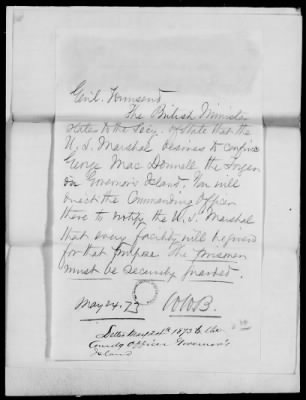 Genl. Townsend
The British Minister
states to the Secy. of State that the
U.S. Marshal desires to confine
George Mac Donnell the forger
on Governor's Island. You will
direct the Commanding Officer
there to notify the U.S. Marshal
that every facility will be given
for that purpose. The prisoner
must be securely guarded.
May 24. 73 W.W.B.
Letter May 24th 1873 to the
Comdg Officer Governor's
Island